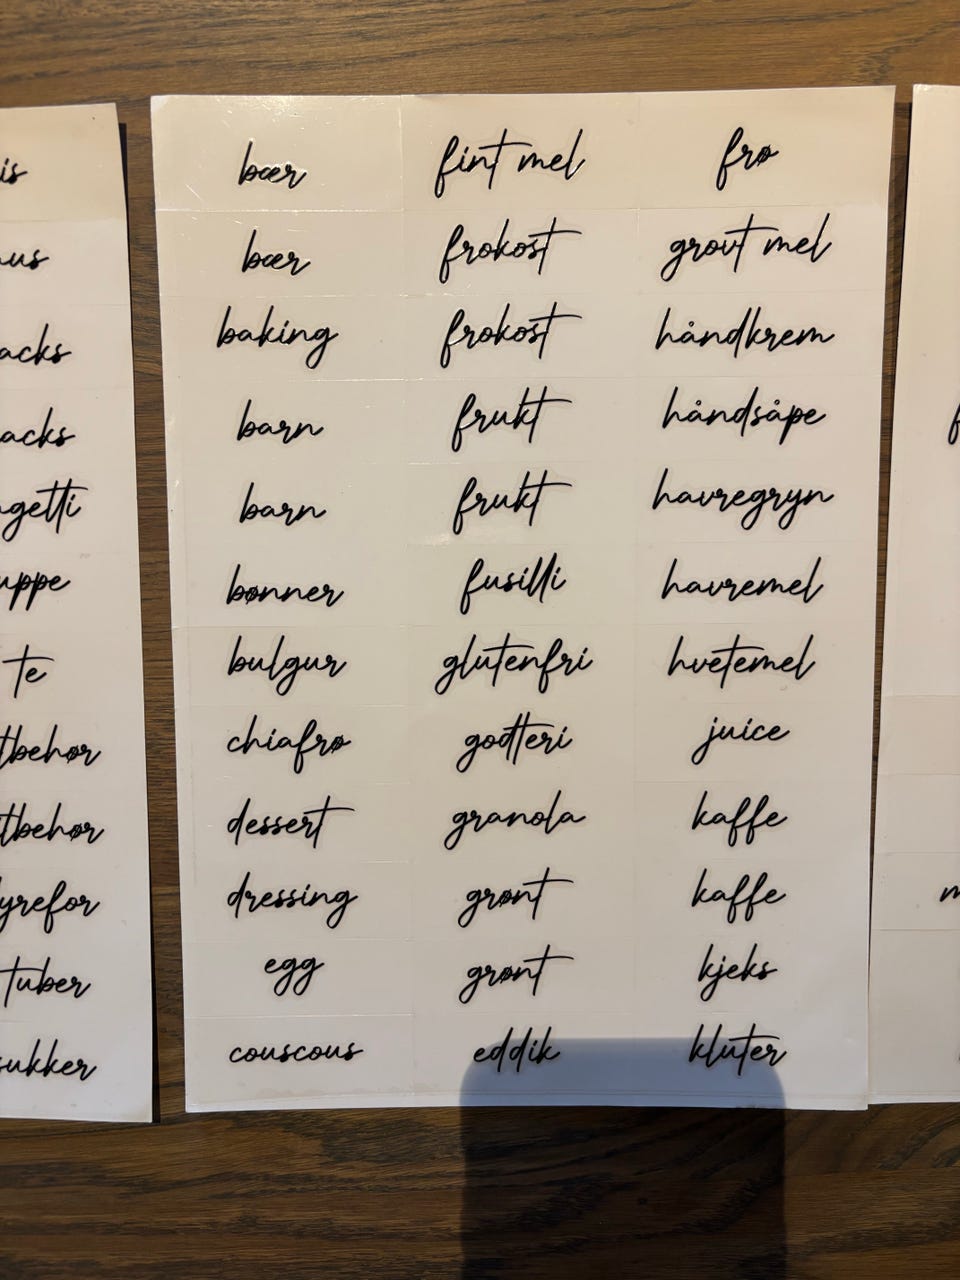 bær fint mel frø
bær frokost grovt mel
baking frokost håndkrem
barn frukt håndsåpe
barn frukt havregryn
bønner fusilli havremel
bulgur glutenfri hvetemel
chiafrø godteri juice
dessert granola kaffe
dressing grønt kaffe
egg grønt kjeks
couscous eddik kluter
is
us
acks
acks
getti
uppe
te
tbehør
tbehør
yrefor
tuber
sukker